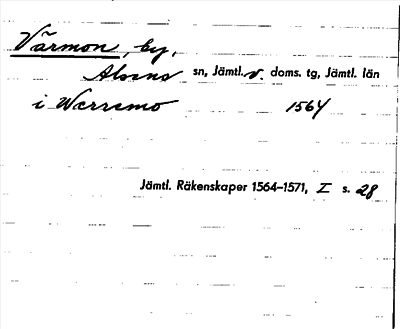 Värmon, by,
Alsens sn, Jämtl. v. doms. tg, Jämtl. län
i Werremo 1564
Jämtl. Räkenskaper 1564–1571, I s. 28